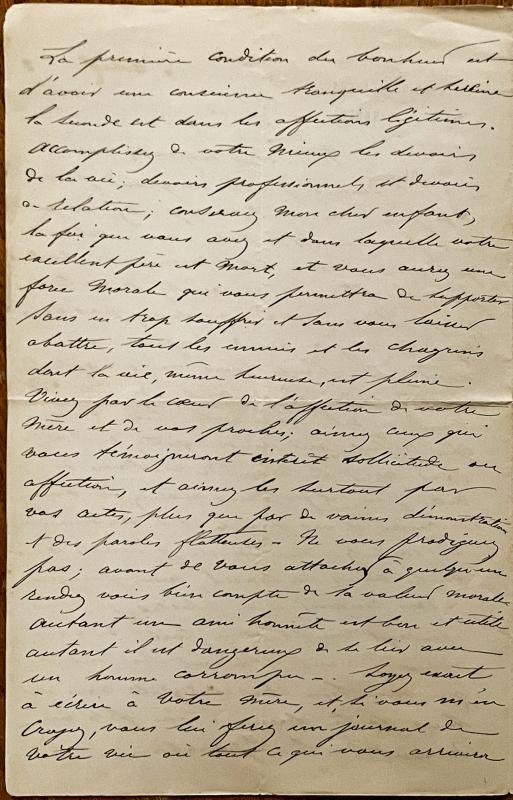 La première condition du bonheur est
d'avoir une conscience tranquille et sereine
la seconde est dans les affections légitimes.
Accomplissez de votre mieux les devoirs
de la vie; devoirs professionnels et devoirs
de relation; conservez mon cher enfant,
la foi que vous avez et dans laquelle votre
excellent père est mort, et vous aurez une
force morale qui vous permettra de supporter
sans en trop souffrir et sans vous laisser
abattre, tous les ennuis et les chagrins
dont la vie, même heureuse, est pleine.
Vivez par le cœur de l'affection de votre
Mère et de vos proches; aimez ceux qui
vous témoigneront intérêt sollicitude ou
affection, et aimez les surtout par
vos actes, plus que par de vaines démonstrations
et des paroles flatteuses - Ne vous prodiguez
pas; avant de vous attacher à quelqu'un
rendez vous bien compte de sa valeur morale
autant un ami honnête est bon et utile
autant il est dangereux de se lier avec
un homme corrompu -. Soyez exact
à écrire à votre Mère, et, si vous m'en
croyez, vous lui ferez un journal de
votre vie où tout ce qui vous arrivera